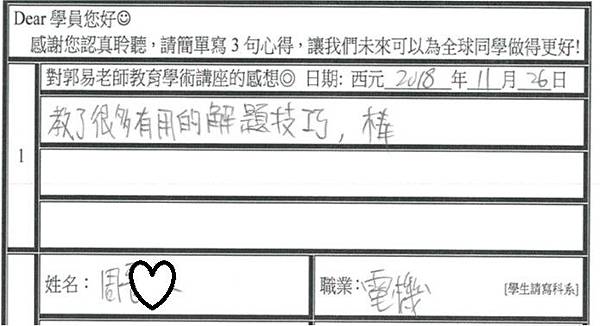 Dear 學員您好☺
感謝您認真聆聽，請簡單寫 3 句心得，讓我們未來可以為全球同學做得更好!
對郭易老師教育學術講座的感想◎ 日期: 西元 2018 年 11 月 26 日
1
教了很多有用的解題技巧，棒
姓名： 周
職業： 電機 [學生請寫科系]